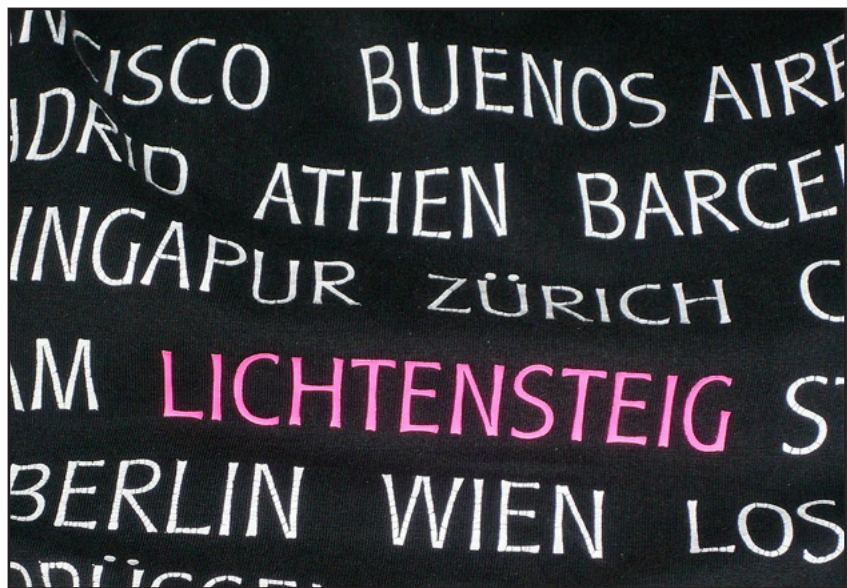 NCISCO BUENOS AIRE
ADRID ATHEN BARCE
INGAPUR ZÜRICH C
AM LICHTENSTEIG ST
BERLIN WIEN LOS
BRÜSSEL